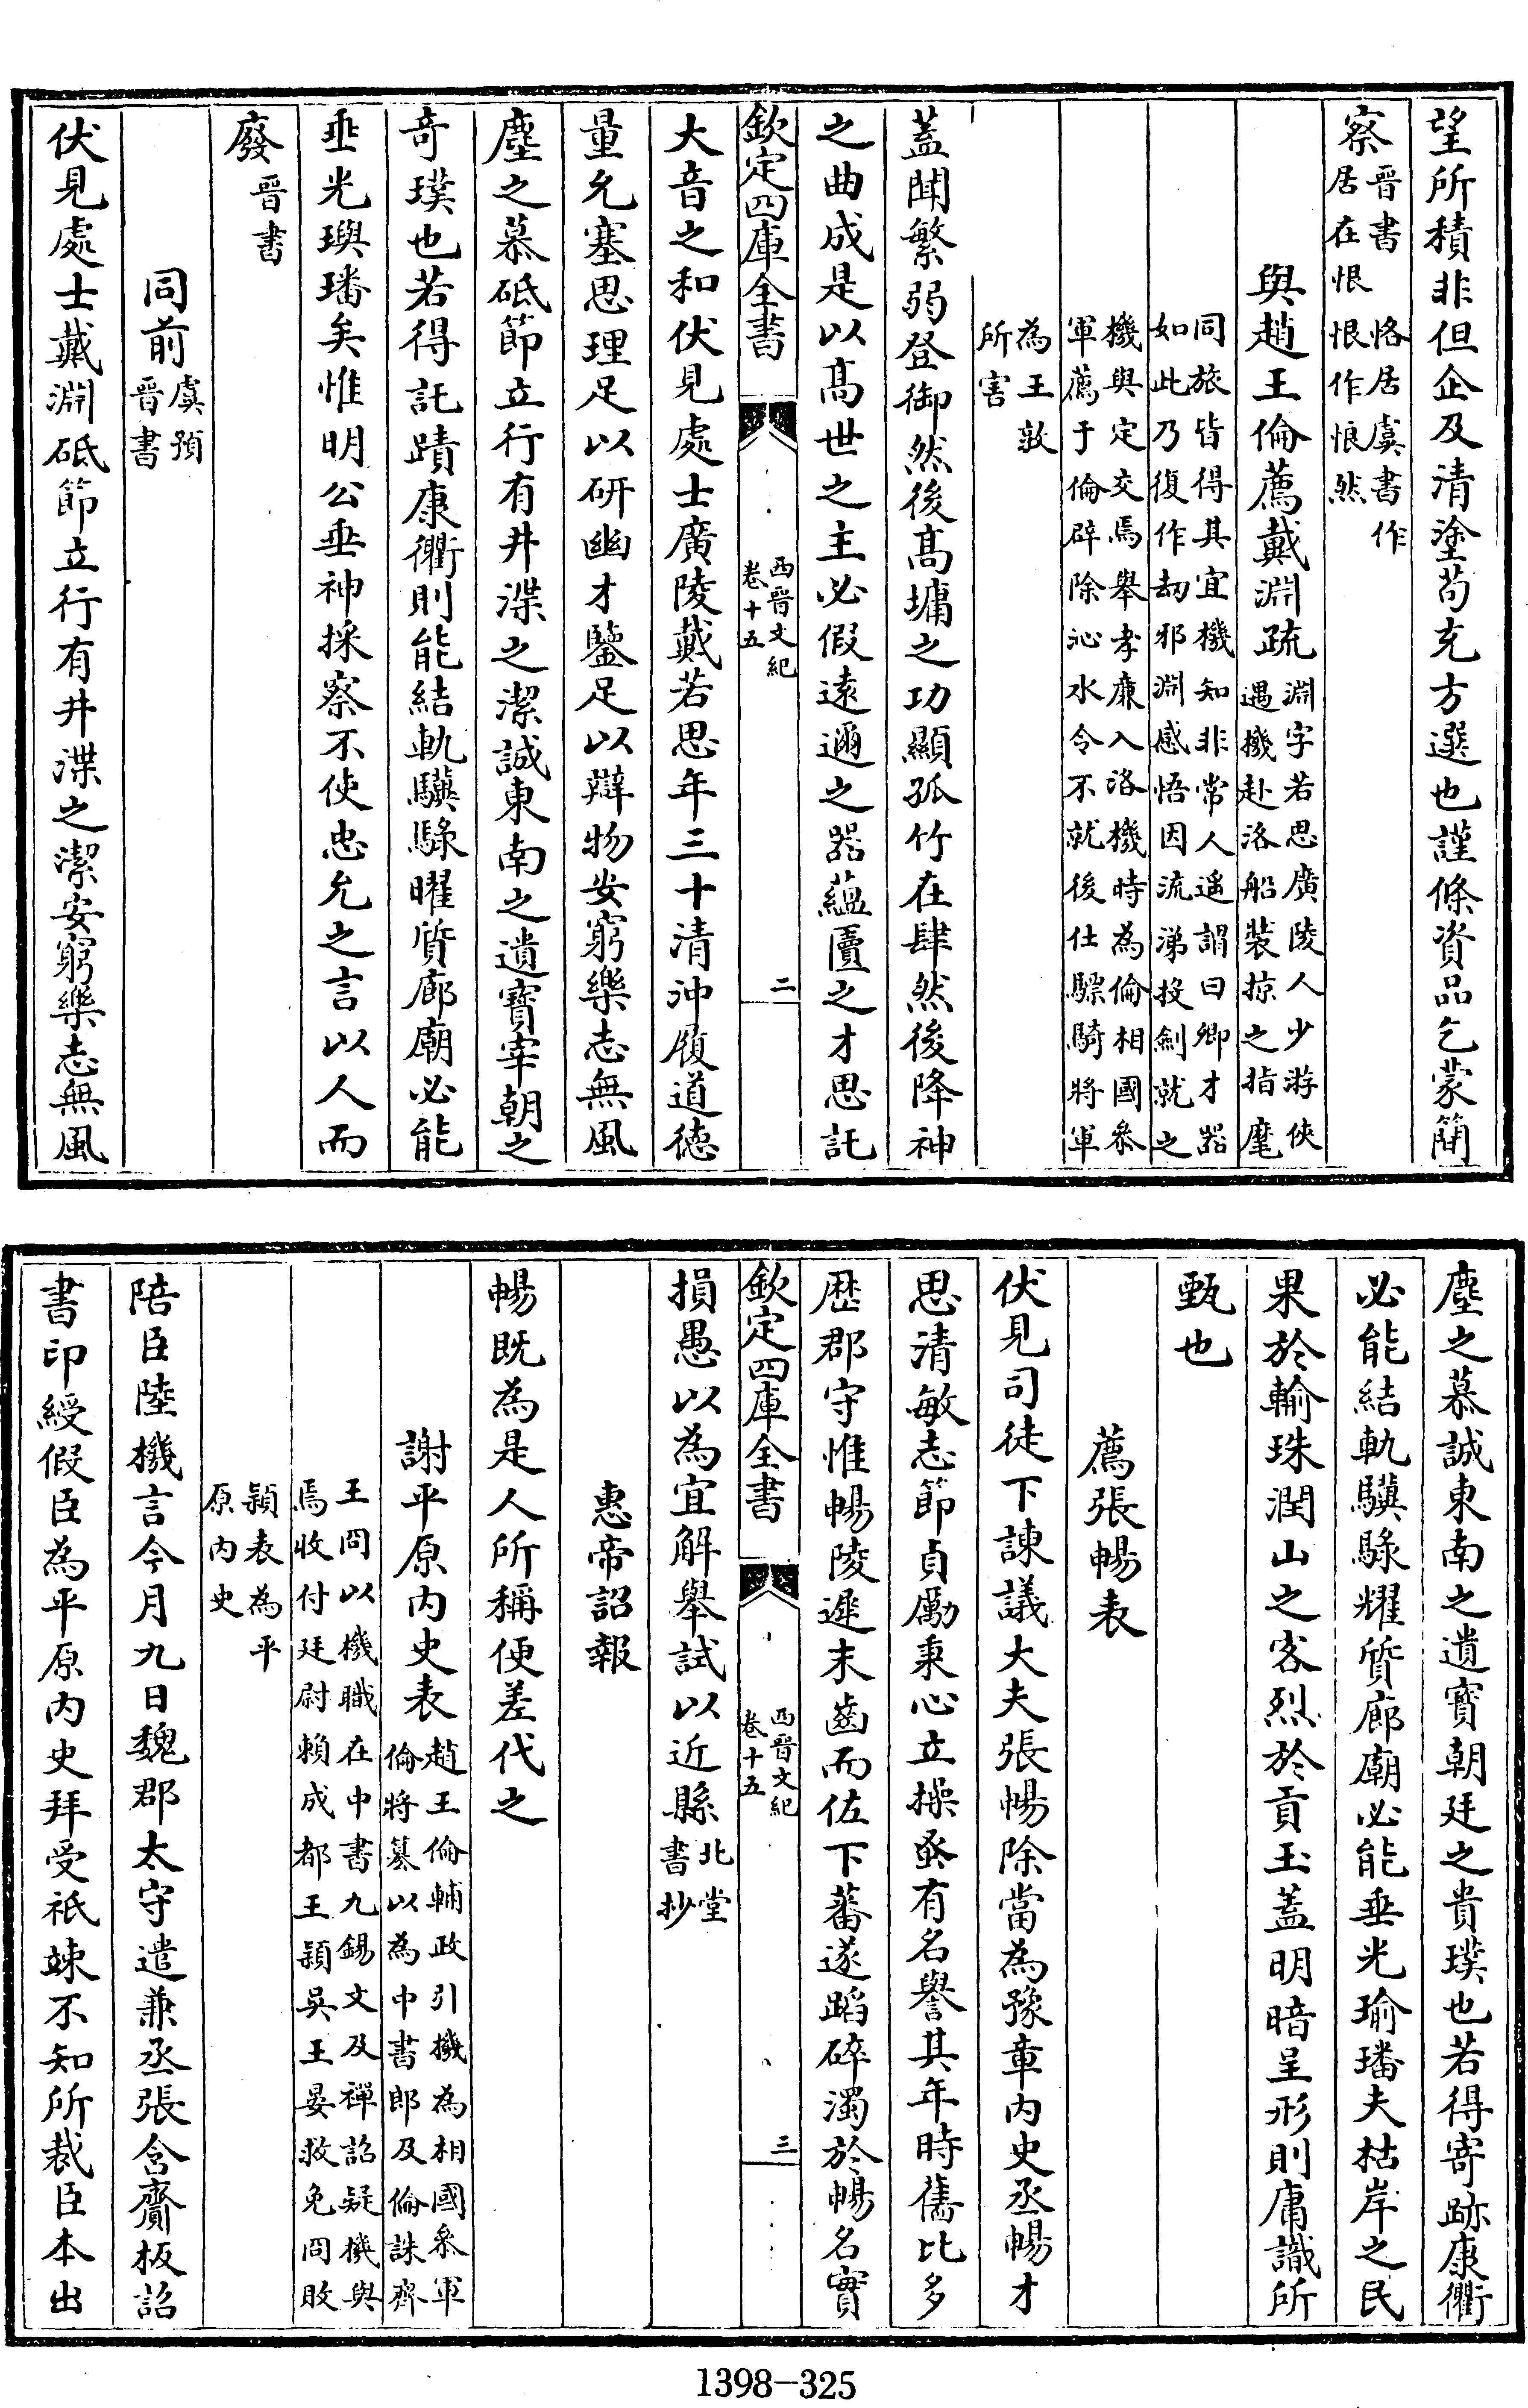 望所積非但企及清塗苟充方選也謹條資品乞蒙簡
察晉書　恪居虞書作居在恨　恨作悢然
與趙王倫薦戴淵疏淵字若思廣陵人少游俠遇機赴洛船裝掠之指麾
同旅皆得其宜機知非常人遥謂曰卿才器如此乃復作刼邪淵感悟因流涕投劍就之
機與定交焉舉孝廉入洛機時為倫相國叅軍薦于倫辟除沁水令不就後仕驃騎將軍
為王敦所害
蓋聞繁弱登御然後髙墉之功顯孤竹在肆然後降神
之曲成是以髙世之主必假逺邇之器蘊匵之才思託
欽定四庫全書
西晉文紀
卷十五
二
大音之和伏見處士廣陵戴若思年三十清沖履道徳
量允塞思理足以研幽才鑒足以辯物安窮樂志無風
塵之慕砥節立行有井渫之潔誠東南之遺寶宰朝之
奇璞也若得託蹟康衢則能結軌驥騄曜質廊廟必能
垂光璵璠矣惟明公垂神採察不使忠允之言以人而
廢晉書
同前虞預晉書
伏見處士戴淵砥節立行有井渫之潔安窮樂志無風
塵之慕誠東南之遺寳朝廷之貴璞也若得寄跡康衢
必能結軌驥騄耀質廊廟必能垂光瑜璠夫枯岸之民
果於輸珠潤山之客烈於貢玉蓋明暗呈形則庸識所
甄也
薦張暢表
伏見司徒下諫議大夫張暢除當為豫章内史丞暢才
思清敏志節貞厲秉心立操蚤有名譽其年時舊比多
歴郡守惟暢陵遲末齒而佐下蕃遂蹈碎濁於暢名實
欽定四庫全書
西晉文紀
卷十五
三
損愚以為宜解舉試以近縣北堂書抄
惠帝詔報
暢既為是人所稱便差代之
謝平原内史表趙王倫輔政引機為相國叅軍倫將簒以為中書郎及倫誅齊
王冏以機職在中書九錫文及禪詔疑機與焉收付廷尉賴成都王頴吳王晏救免冏敗
頴表為平原内史
陪臣陸機言今月九日魏郡太守遣兼丞張含齎板詔
書印綬假臣為平原内史拜受祇竦不知所裁臣本出
1398-325